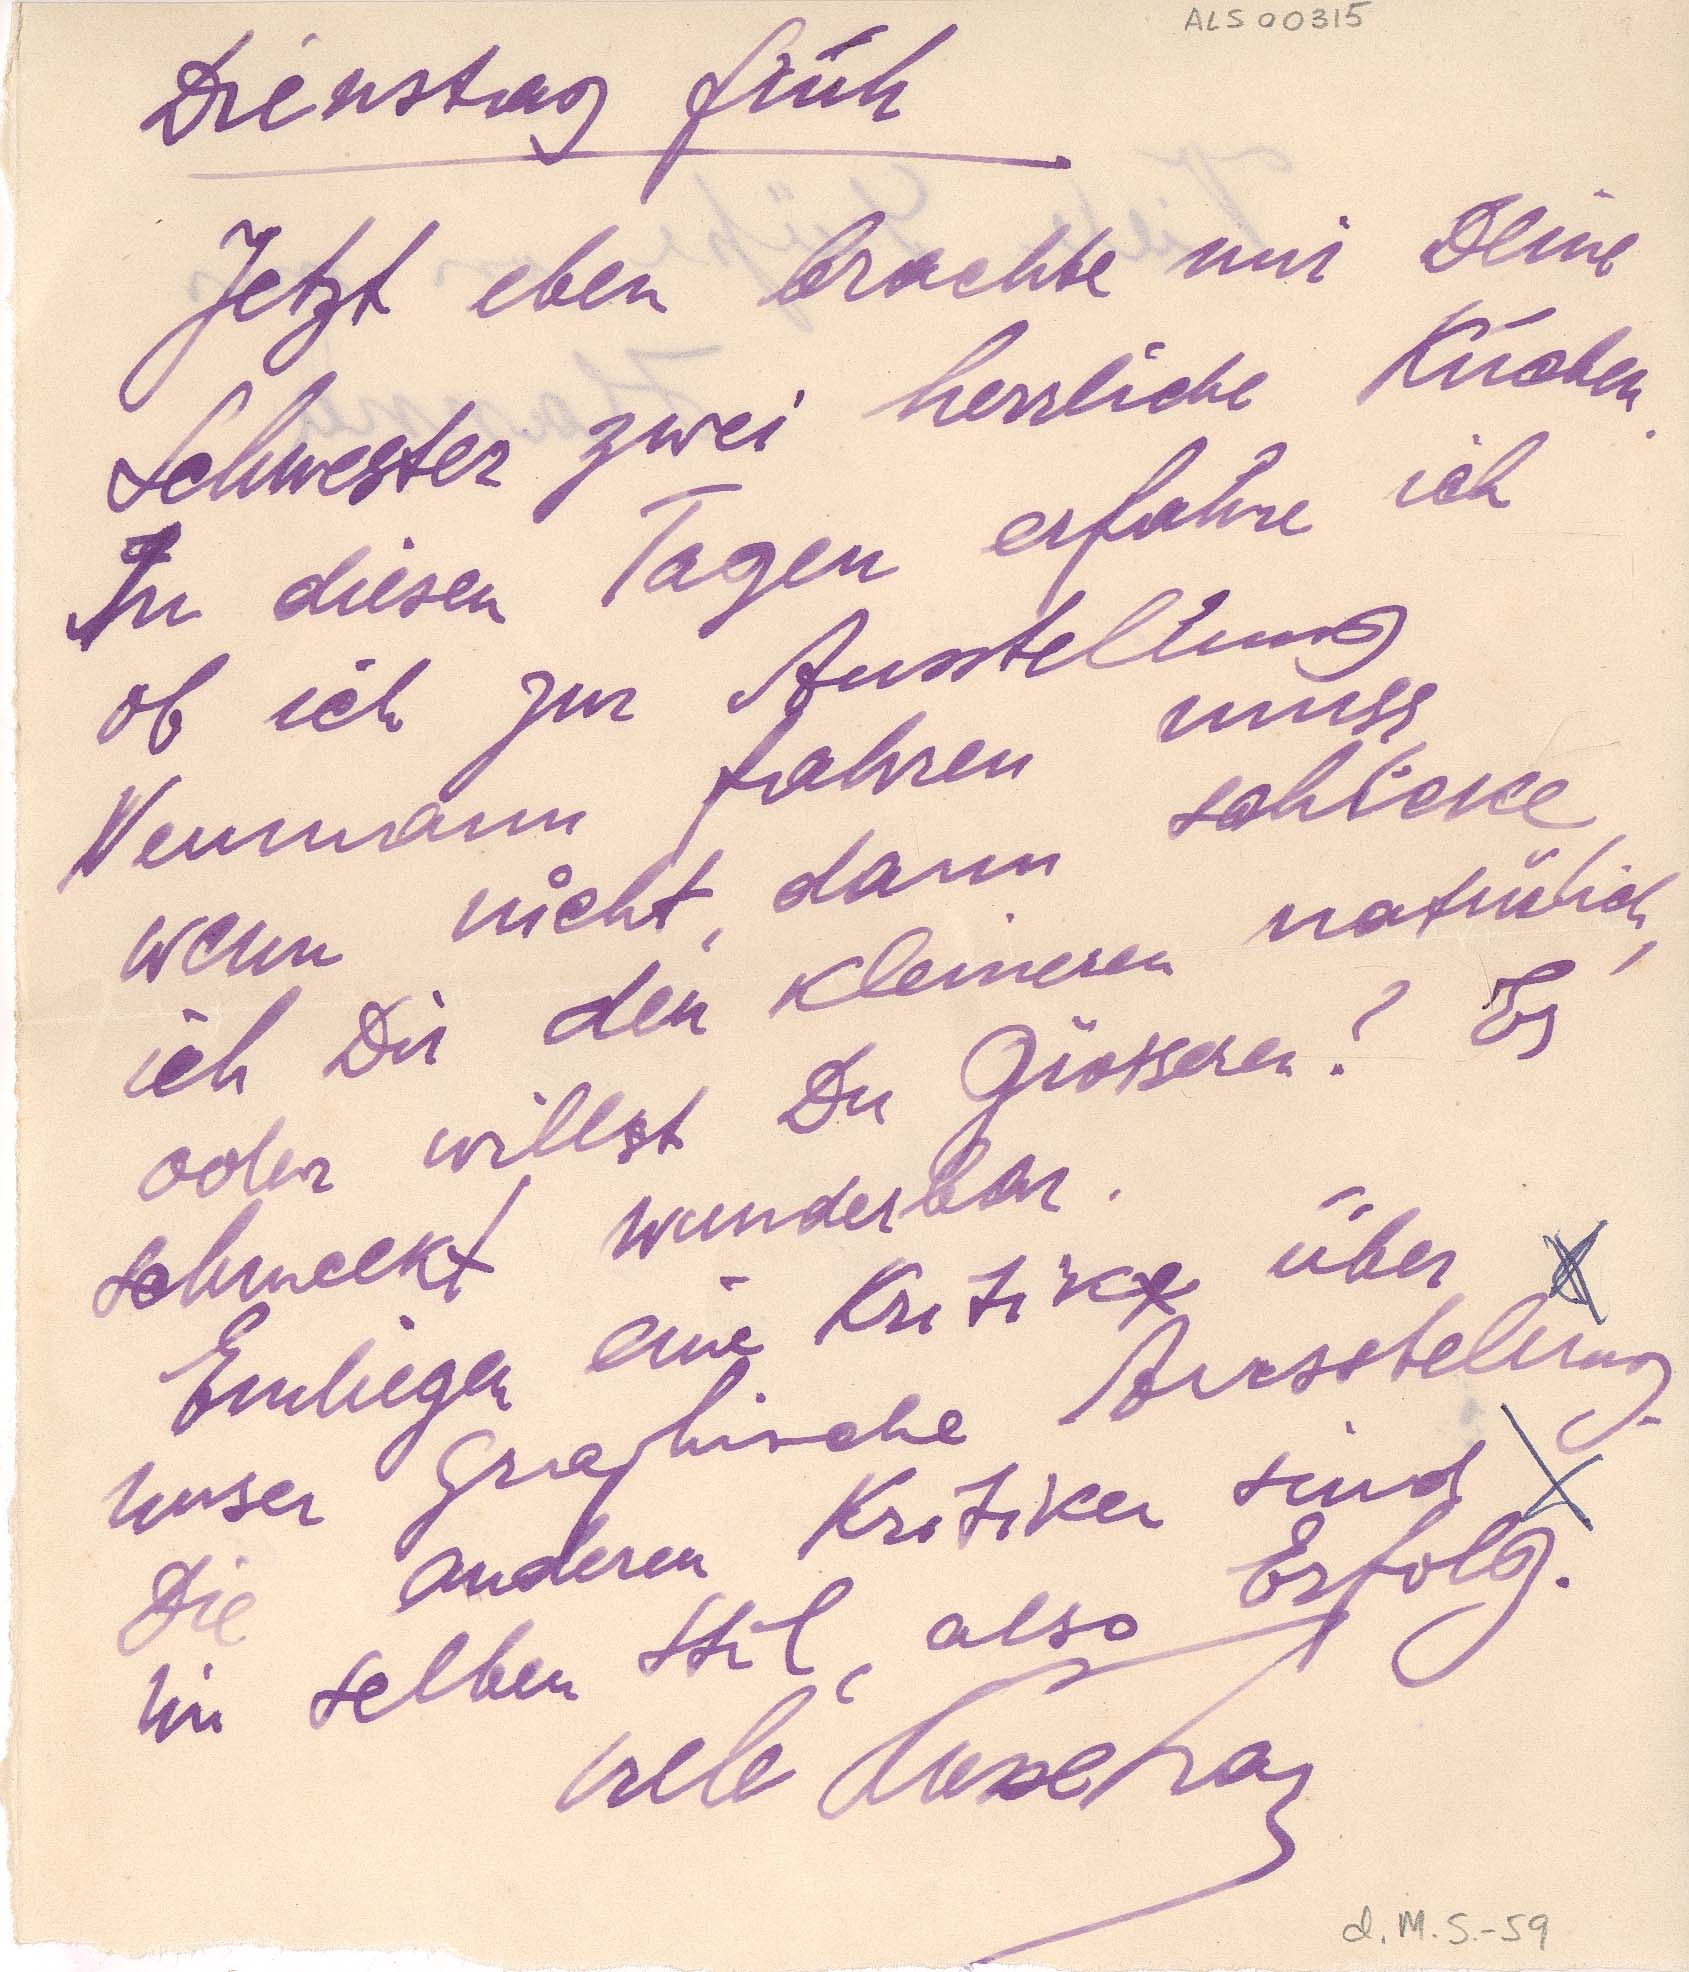 ALS 00315
Dienstag früh
Jetzt eben brachte mir Deine
Schwester zwei herrliche Kuchen.
In diesen Tagen erfahre ich
ob ich zur Ausstellung
Neumann fahren muss
wenn nicht, dann schicke
ich Dir den kleineren natürlich,
oder willst Du Grösseren? Es
schmeckt wunderbar.
Einliegen eine Kritik über
unser Graphische Ausstellung.
Die anderen Kritiken sind
im selben Stil, also Erfolg.
viele
d.M.S.-59